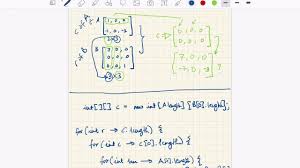 c of A
A [1, 0, 0
-1, 0, 3]
2×3
r of B
B [7, 0, 0
0, 0, 0
0, 0, 1]
3×3
C [0, 0, 0
0, 0, 0]
[7, 0, 0
-7, 0, 3]
int[][] c = new int [A.length] [B[0].length];
for (int r → C.length) {
for (int c → C[0].length) {
for (int → A[0].length) {